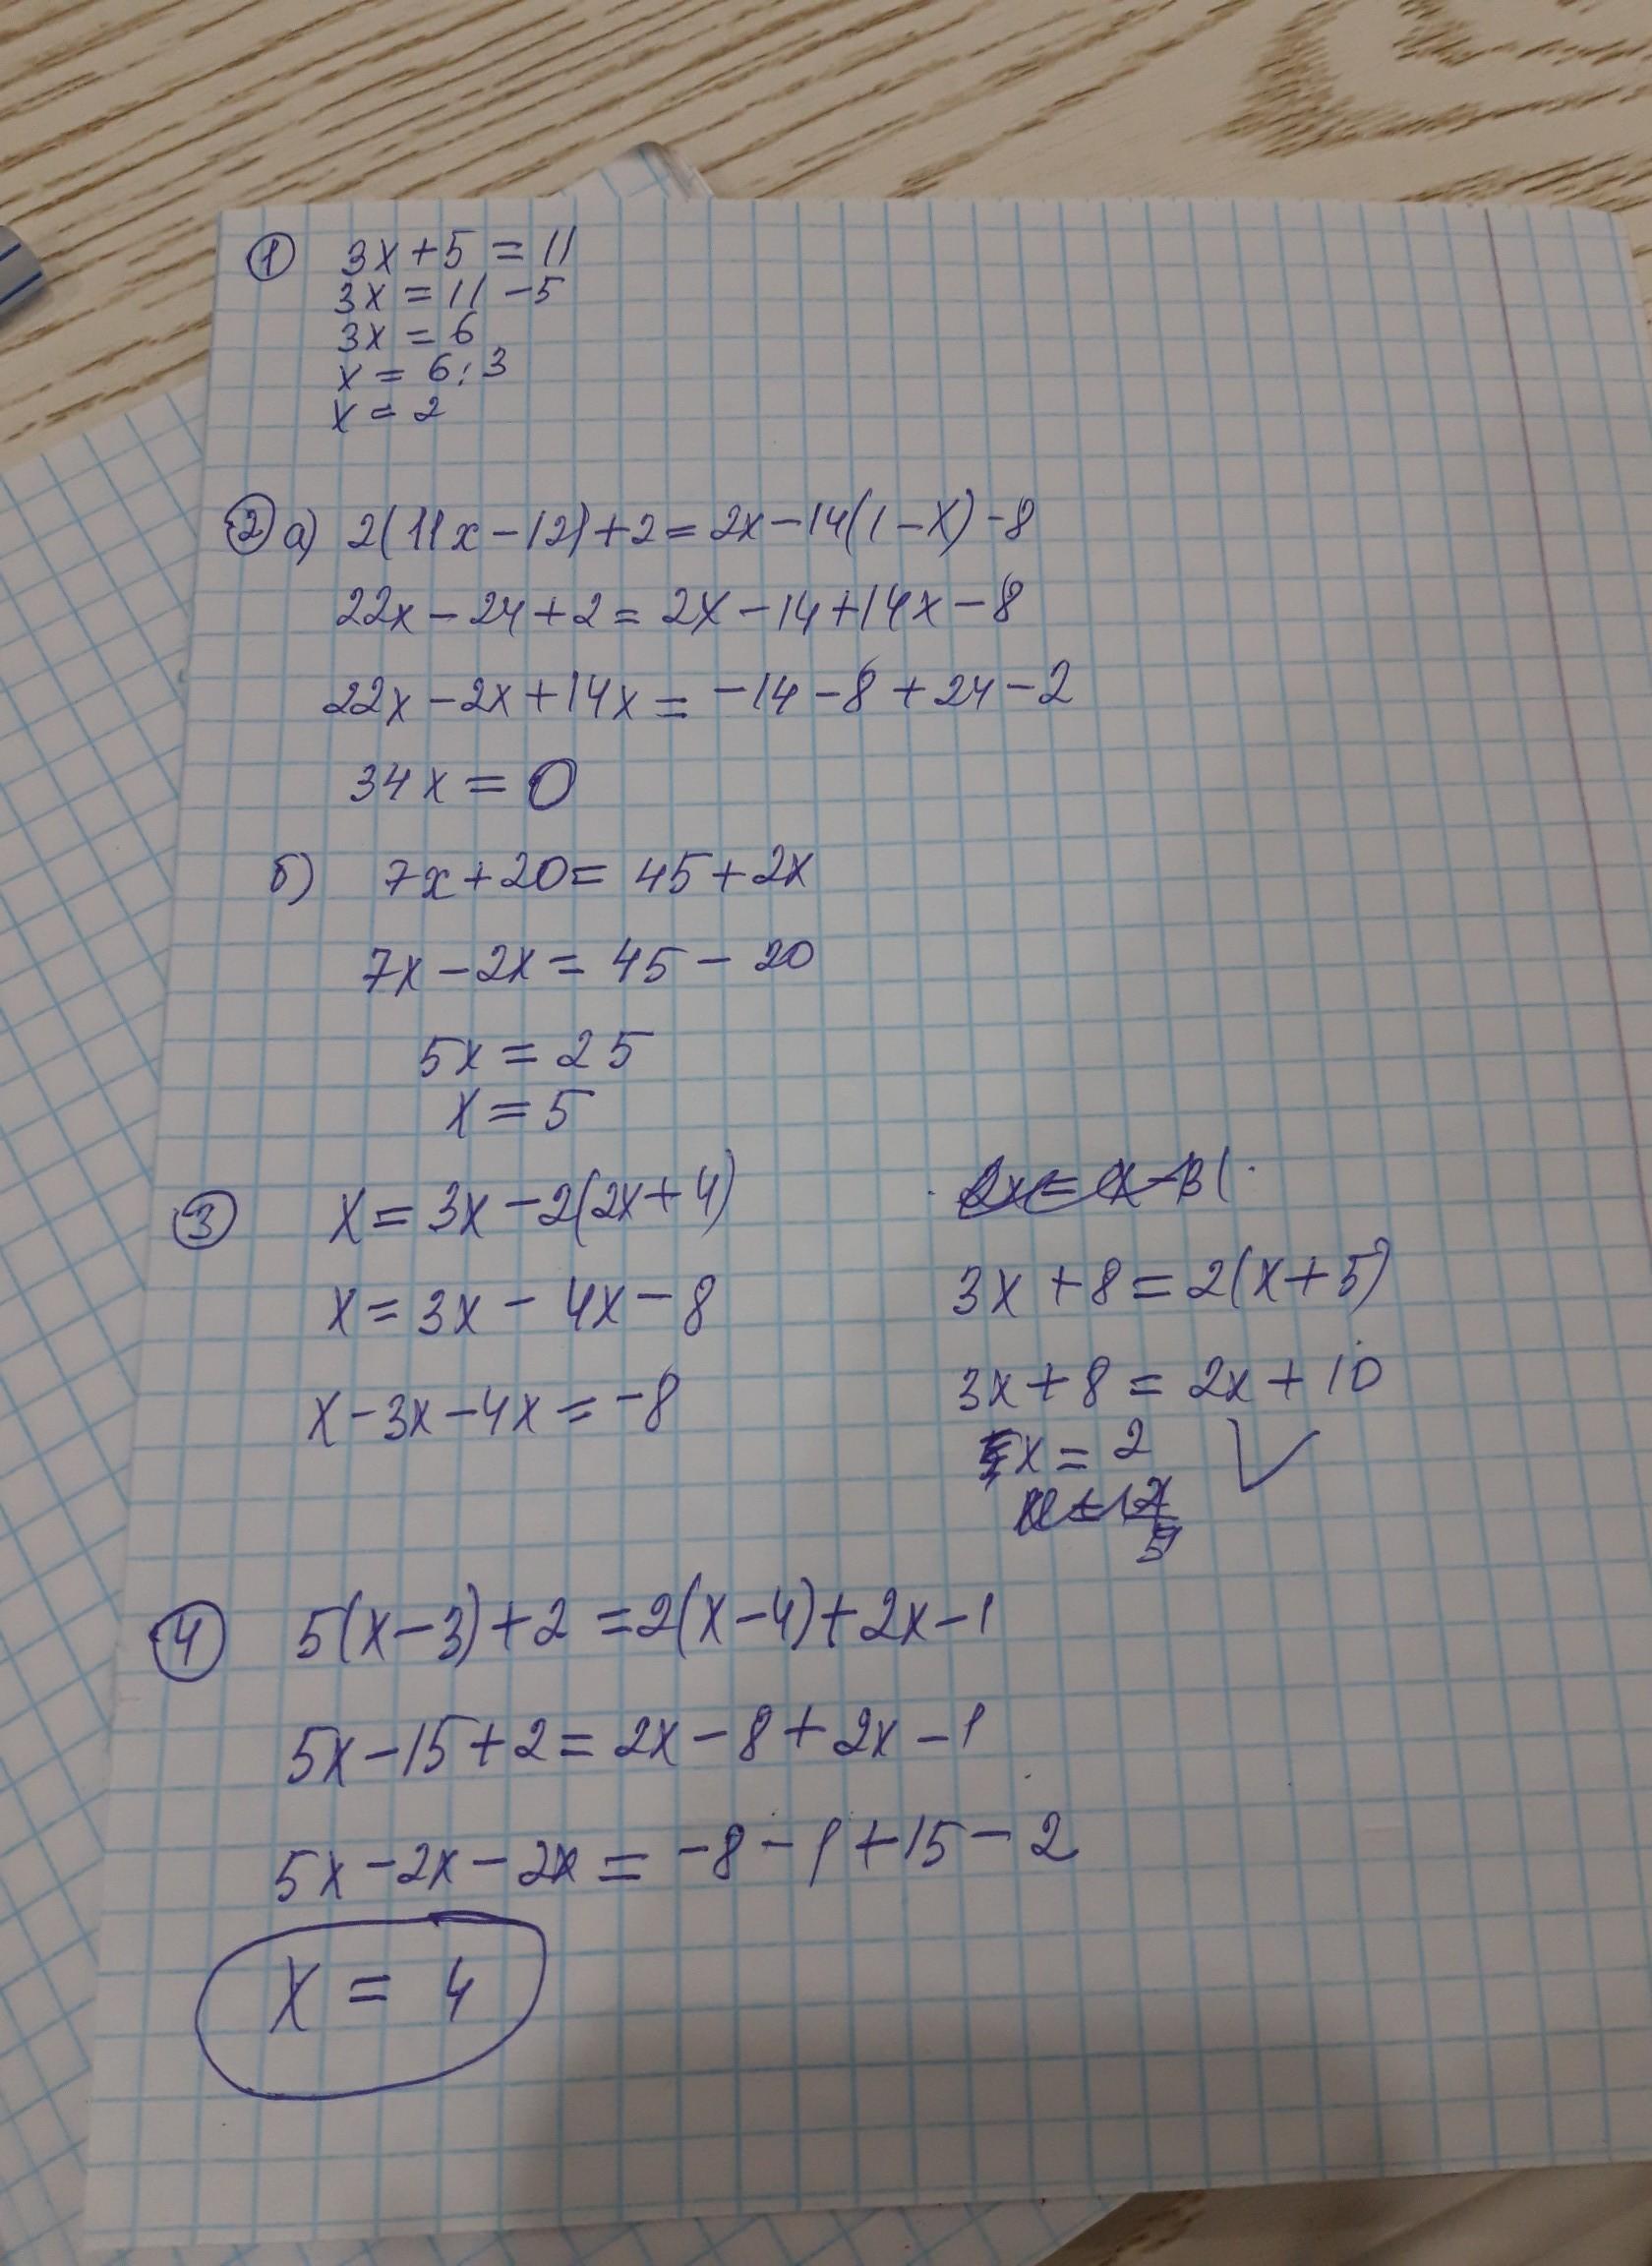 ① 3x+5 = 11
3x = 11 - 5
3x = 6
x = 6 : 3
x = 2
② а) 2(11x - 12) + 2 = 2x - 14(1 - x) - 8
22x - 24 + 2 = 2x - 14 + 14x - 8
22x - 2x + 14x = -14 - 8 + 24 - 2
34x = 0
б) 7x + 20 = 45 + 2x
7x - 2x = 45 - 20
5x = 25
x = 5
③ x = 3x - 2(2x + 4)
x = 3x - 4x - 8
x - 3x - 4x = -8
3x + 8 = 2(x + 5)
3x + 8 = 2x + 10
x = 2
④ 5(x - 3) + 2 = 2(x - 4) + 2x - 1
5x - 15 + 2 = 2x - 8 + 2x - 1
5x - 2x - 2x = -8 - 1 + 15 - 2
x = 4